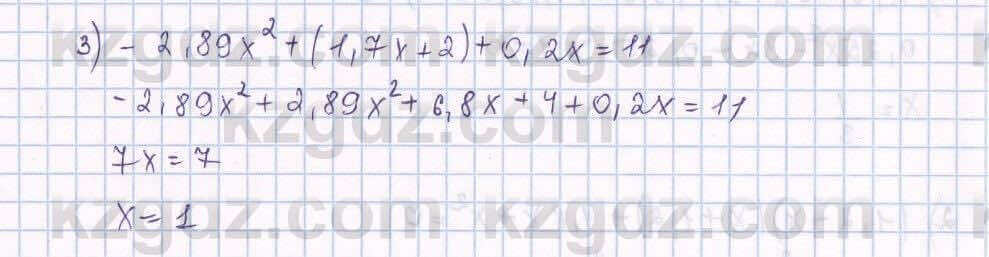 3) - 2,89x² + (1,7x + 2) + 0,2x = 11
- 2,89x² + 2,89x² + 6,8x + 4 + 0,2x = 11
7x = 7
x = 1
kzgdz.com kzgdz.com
kzgdz.com
kzgdz.com kzgdz.com